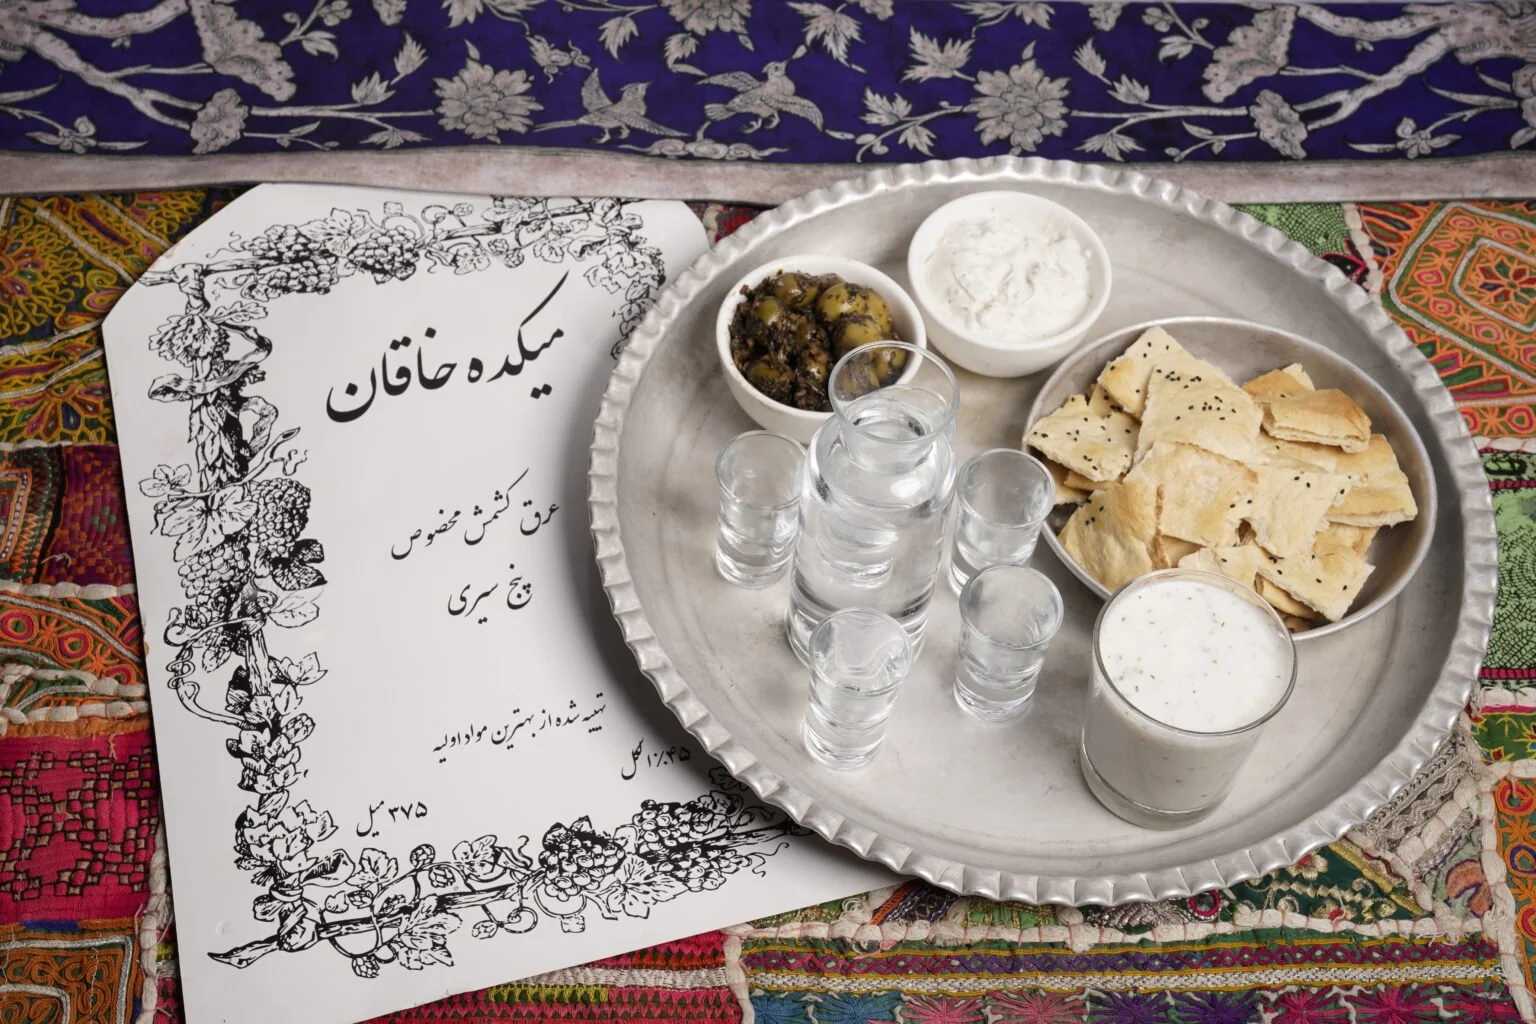 میکده خاقان
عرق کشمش مخصوص
پنج سیری
تهیه شده از بهترین مواد اولیه
۴۵٪ الکل
۳۷۵ میل